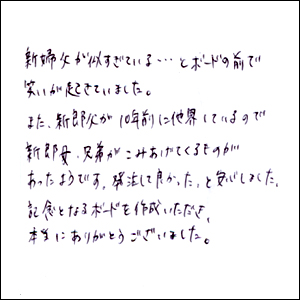 新婦父が似すぎている…とボードの前で
笑いが起きていました。
また、新郎父が10年前に他界しているので
新郎母、兄弟がこみあげてくるものが
あったようです。発注して良かった、と安心しました。
記念となるボードを作成いただき、
本当にありがとうございました。